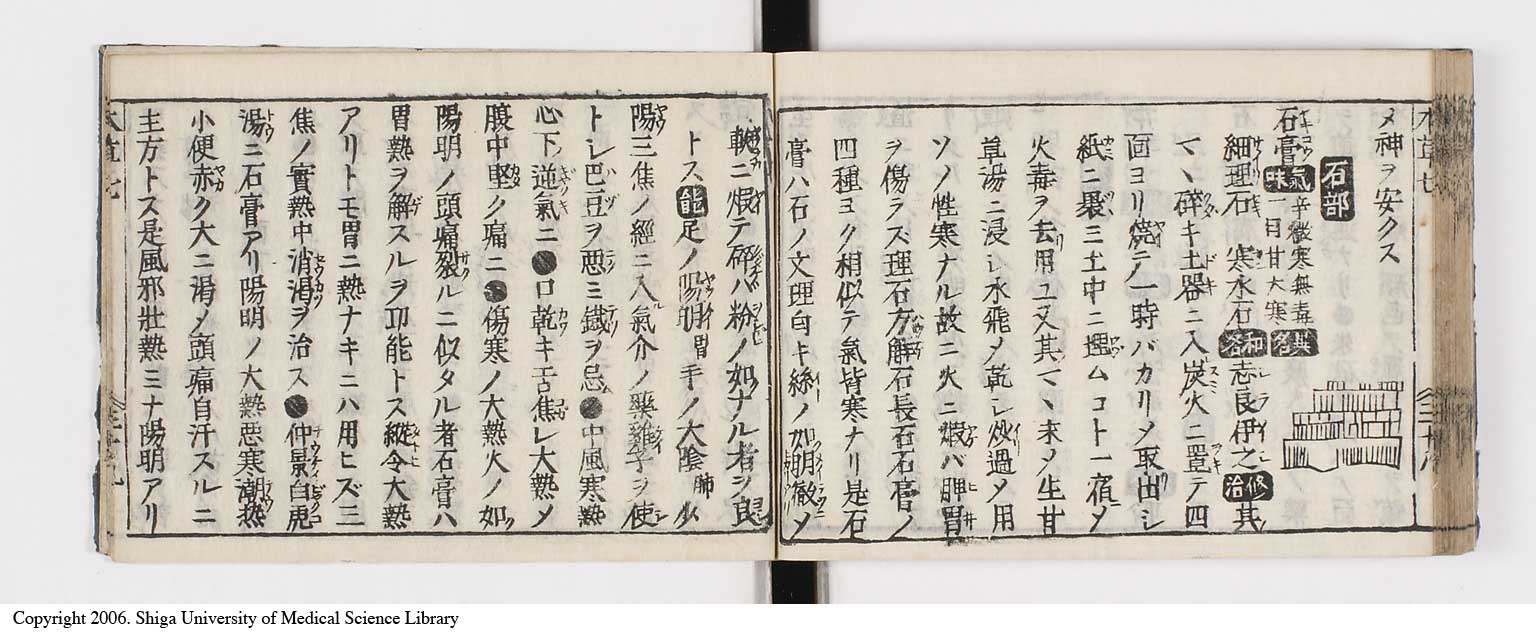 メ神ヲ安クス
石部
石膏 氣味 辛微寒無毒一曰甘大寒 異名
細理石 寒水石 和名 志良伊之 修治 其
マヽ碎キ土器ニ入炭火ニ置テ四
面ヨリ燒テ一時バカリメ取出シ
紙ニ裹三土中ニ埋ムコト一宿メ
火毒ヲ去用ユ又其マヽ末メ生甘
草湯ニ浸シ水飛メ乾シ炒過メ用
ソノ性寒ナル故ニ火ニ煆バ脾胃
ヲ傷ラズ理石方解石長石石膏ノ
四種ヨク相似テ氣皆寒ナリ是石
膏ハ石ノ文理白キ絲ノ如明徹メ
軟ニ煆テ碎バ粉ノ如ナル者ヲ良
トス 能 足ノ陽明胃手ノ大陰肺少
陽三焦ノ經ニ入氣分ノ藥雞子ヲ使
トシ巴豆ヲ悪ミ鐵ヲ忌●中風寒熱
心下逆氣ニ●口乾キ舌焦レ大熱メ
腹中堅ク痛ニ●傷寒ノ大熱火ノ如
陽明ノ頭痛裂ルニ似タル者石膏ハ
胃熱ヲ解スルヲ功能トス縱令大熱
アリトモ胃ニ熱ナキニハ用ヒズ三
焦ノ實熱中消渇ヲ治ス●仲景白虎
湯ニ石膏アリ陽明ノ大熱悪寒潮熱
小便赤ク大ニ渇メ頭痛自汗スルニ
主方トス是風邪壯熱三ナ陽明アリ
Copyright 2006. Shiga University of Medical Science Library